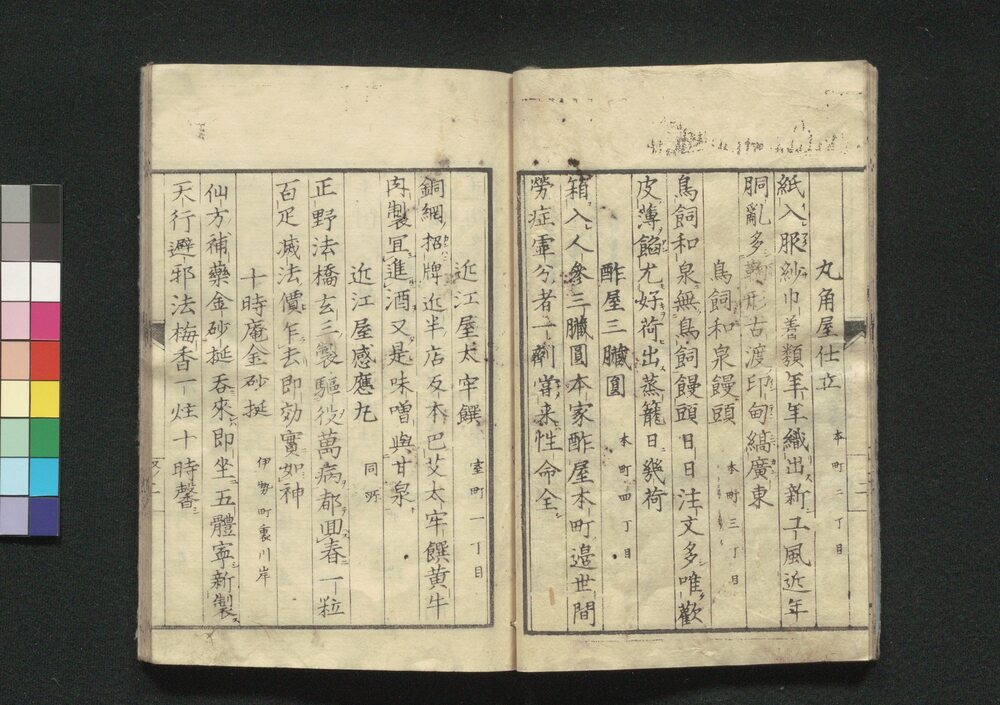 丸角屋仕立 本町 丁目
紙入服紗巾善類年年織出新工風近年
胴亂多形古渡印甸縞廣東
鳥飼和泉饅頭 本町三丁目
鳥飼和泉無鳥飼饅頭日日注文多唯歡
皮薄餡尤好荷出蒸籠日幾荷
酢屋三臓圓 本町四丁目
箱入人參三臓圓本家酢屋本町邉世間
勞症虚分者一劑嘗来性命全
近江屋太牢饌 室町一丁目
銅網招牌近半店反本巴艾太牢饌黄牛
肉製宜進酒又是味噌與甘泉
近江屋感應丸 同所
正野法橋玄三製驅役萬病都回春一粒
百疋滅法價乍去即効實如神
十時庵金砂挺 伊勢町裏川岸
仙方補藥金砂挺呑來即坐五體寧新製
天行避邪法梅香一炷十時馨